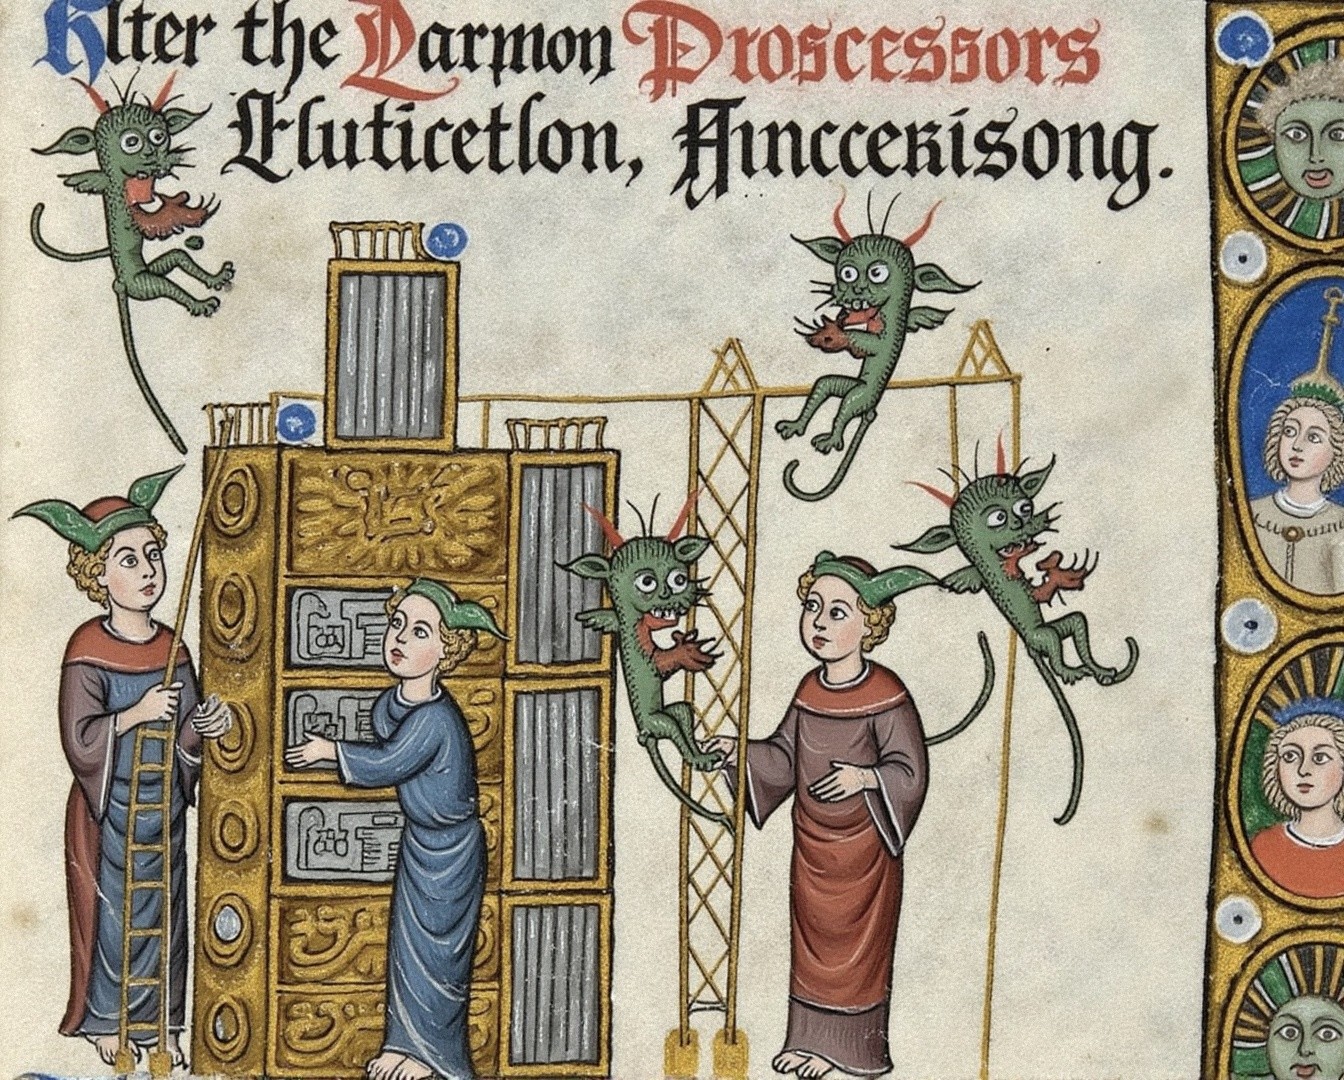 Alter the Darmon Proscessors
Eluticetlon, Aincceкisong.